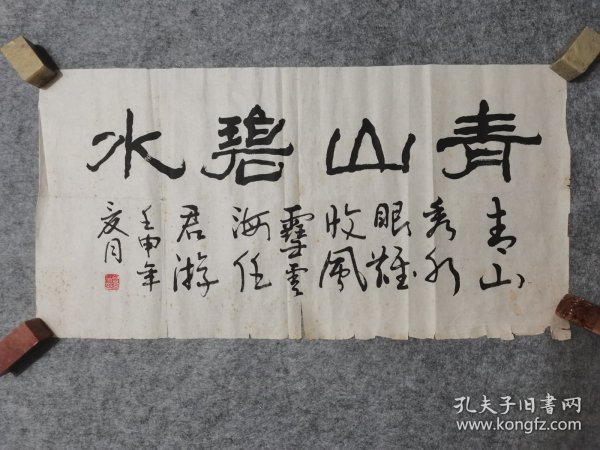 青山碧水
青山
秀水
眼难
收风
云
海任
君游
壬申年
夏月
孔夫子旧书网
www.kongfz.com